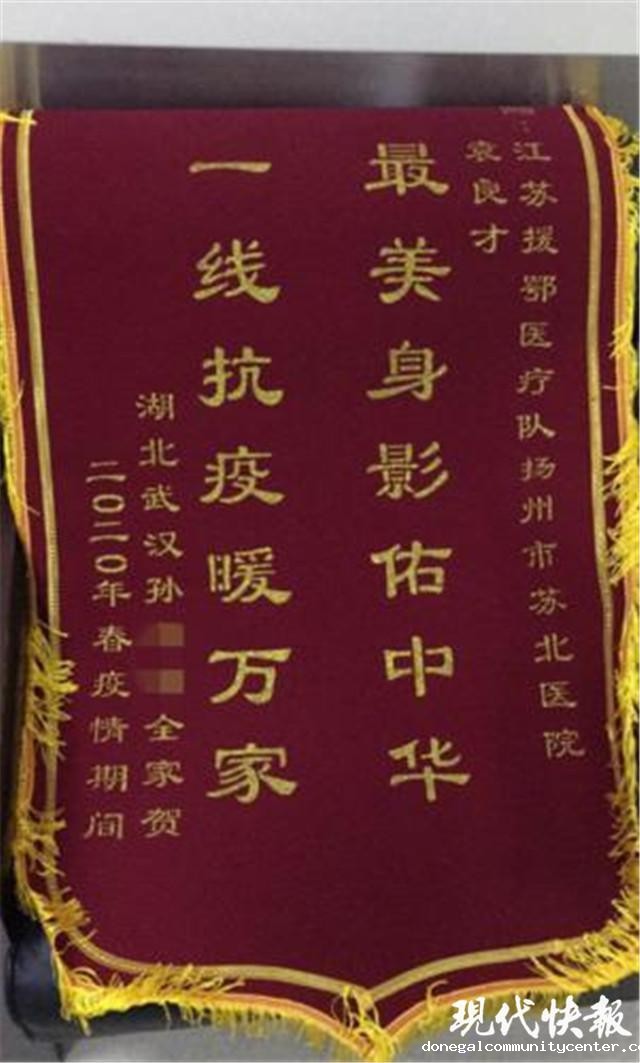 江苏援鄂医疗队扬州市苏北医院
袁良才
最美身影佑中华
一线抗疫暖万家
湖北武汉孙 全家贺
二〇二〇年春疫情期间
现代快报
donegalcommunitycenter.c